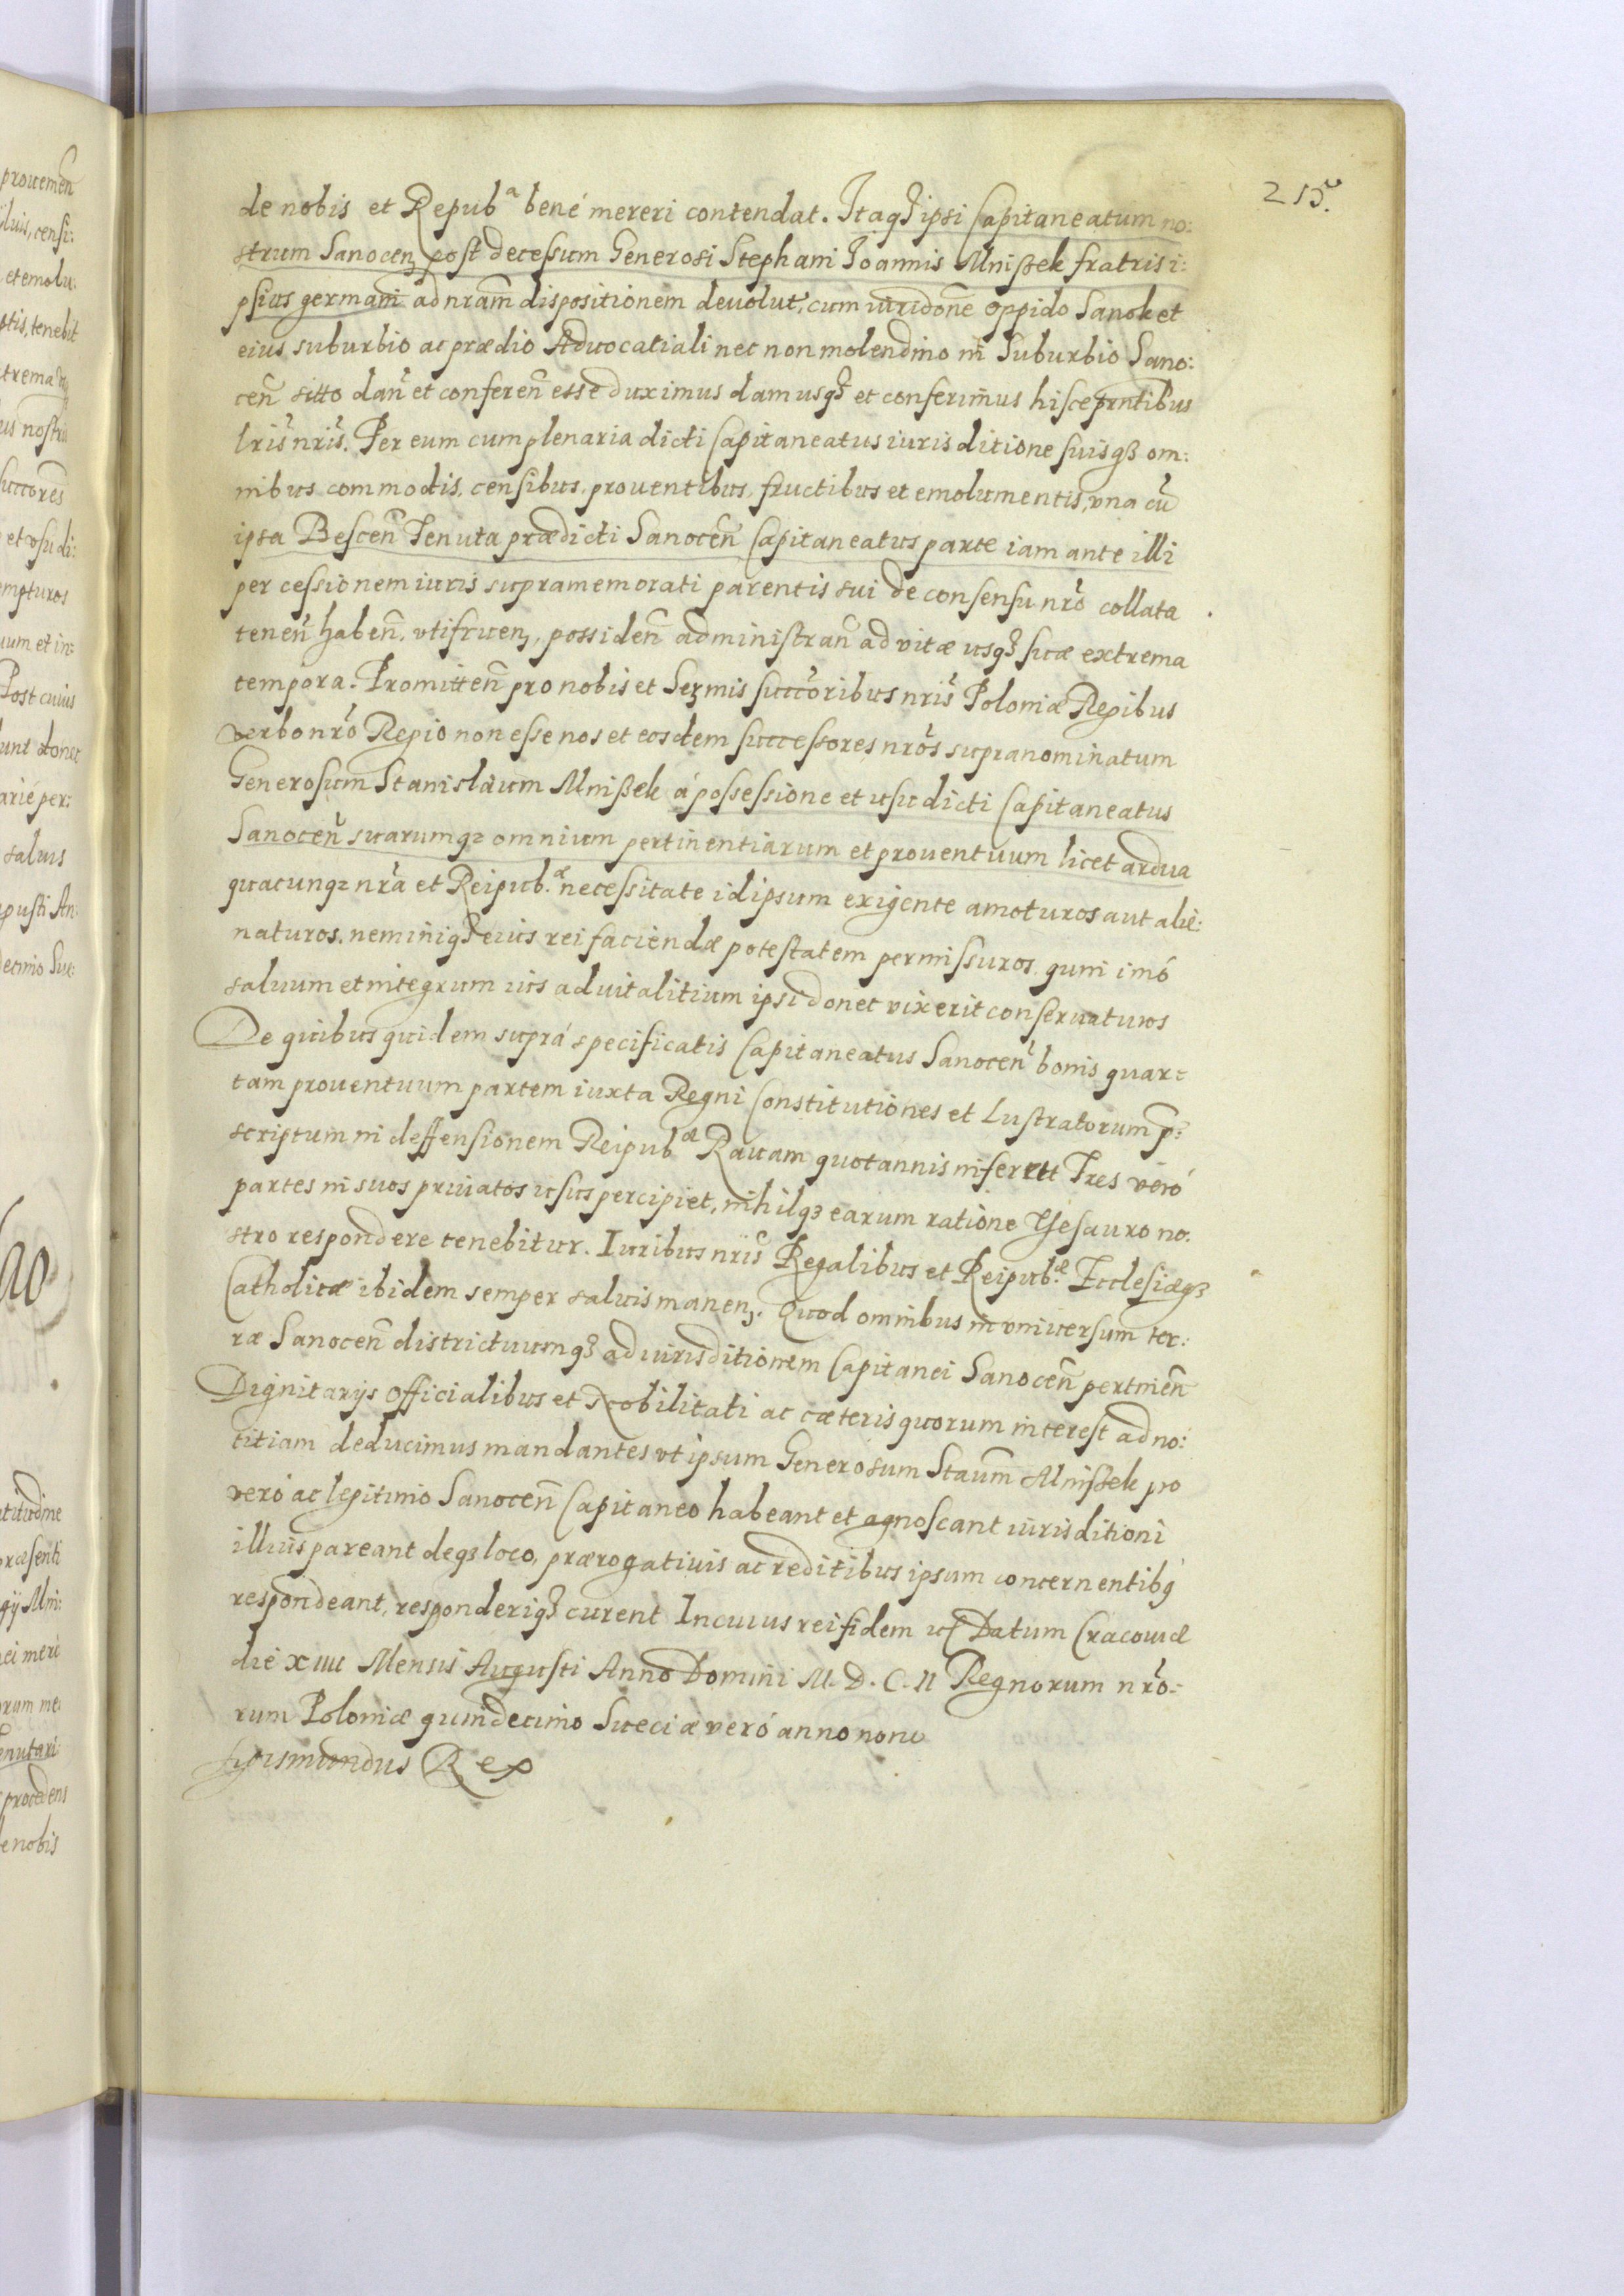 215.
de nobis et Repub.ª bené mereri contendat. Itaqꝫ ipsi Capitaneatum no:
strum Sanocen̄ post decessum Generosi Stephani Ioannis Mnißek fratris i:
psius germani ad nram̄ dispositionem devolut, cum iurisdone oppido Sanok et
eius suburbio ac prædio Advocatiali nec non molendino in Suburbio Sano:
cen̄ sitto dan̄ et conferen̄ esse duximus damusqꝫ et conferimus hisce prntibus
lris nris. Per eum cum plenaria dicti Capitaneatus iurisditione suisqꝫ om:
nibus commodis, censibus, prouentibus, fructibus et emolumentis, vna cū
ipsa Bescen̄ Tenuta prædicti Sanocen̄ Capitaneatus parte iam ante illi
per cessionem iuris supramemorati parentis sui de consensu nro collata
tenen̄ haben̄, vtifruen̄, possiden̄ administran̄ ad vitæ usqꝫ suæ extrema
tempora. Promitten̄ pro nobis et Sermis succoribus nris Poloniæ Regibus
verbo nro Regio non esse nos et eosdem successores nros supranominatum
Generosum Stanislaum Mnißek á possessione et usu dicti Capitaneatus
Sanocen̄ suarumqꝫ omnium pertinentiarum et prouentuum licet ardua
quacunqꝫ nra et Reipub.æ necessitate idipsum exigente amoturos aut alie:
naturos, neminiqꝫ eius rei faciendæ potestatem permissuros quin imó
saluum et integrum ius aduitalitium ipsi donec vixerit conseruaturos
De quibus quidem suprá specificatis Capitaneatus Sanocen̄ bonis quar:
tam prouentuum partem iuxta Regni Constitutiones et Lustratorum p:
scriptum in deffensionem Reipub.æ Rauam quotannis inferett Tres veró
partes in suos priuatos usus percipiet, nihilqꝫ earum ratione Thesauro no:
stro respondere tenebitur. Iuribus nris Regalibus et Reipub.æ Ecclesiæqꝫ
Catholicæ ibidem semper saluis manen̄. Quod omnibus in vniuersum ter:
ræ Sanocen̄ districtuumqꝫ ad iurisditionem Capitanei Sanocen̄ pertinen̄
Dignitarijs Officialibus et Nobilitati ac cæteris quorum interest ad no:
titiam deducimus mandantes vt ipsum Generosum Staum̄ Mnißek pro
veró ac legitimo Sanocen̄ Capitaneo habeant et agnoscant iurisditioni
illius pareant deqꝫ loco, prærogatiuis ac reditibus ipsum concernentibꝰ
respondeant, responderiqꝫ curent In cuius rei fidem Datum Cracouiæ
die xiiii Mensis Augusti Anno Domini M. D. C. II Regnorum nro:
rum Poloniæ quindecimo Sueciæ veró anno nono
Sigismundus Rex